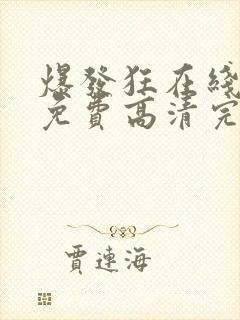 爆發狂在綫
免費高清完
賈連海